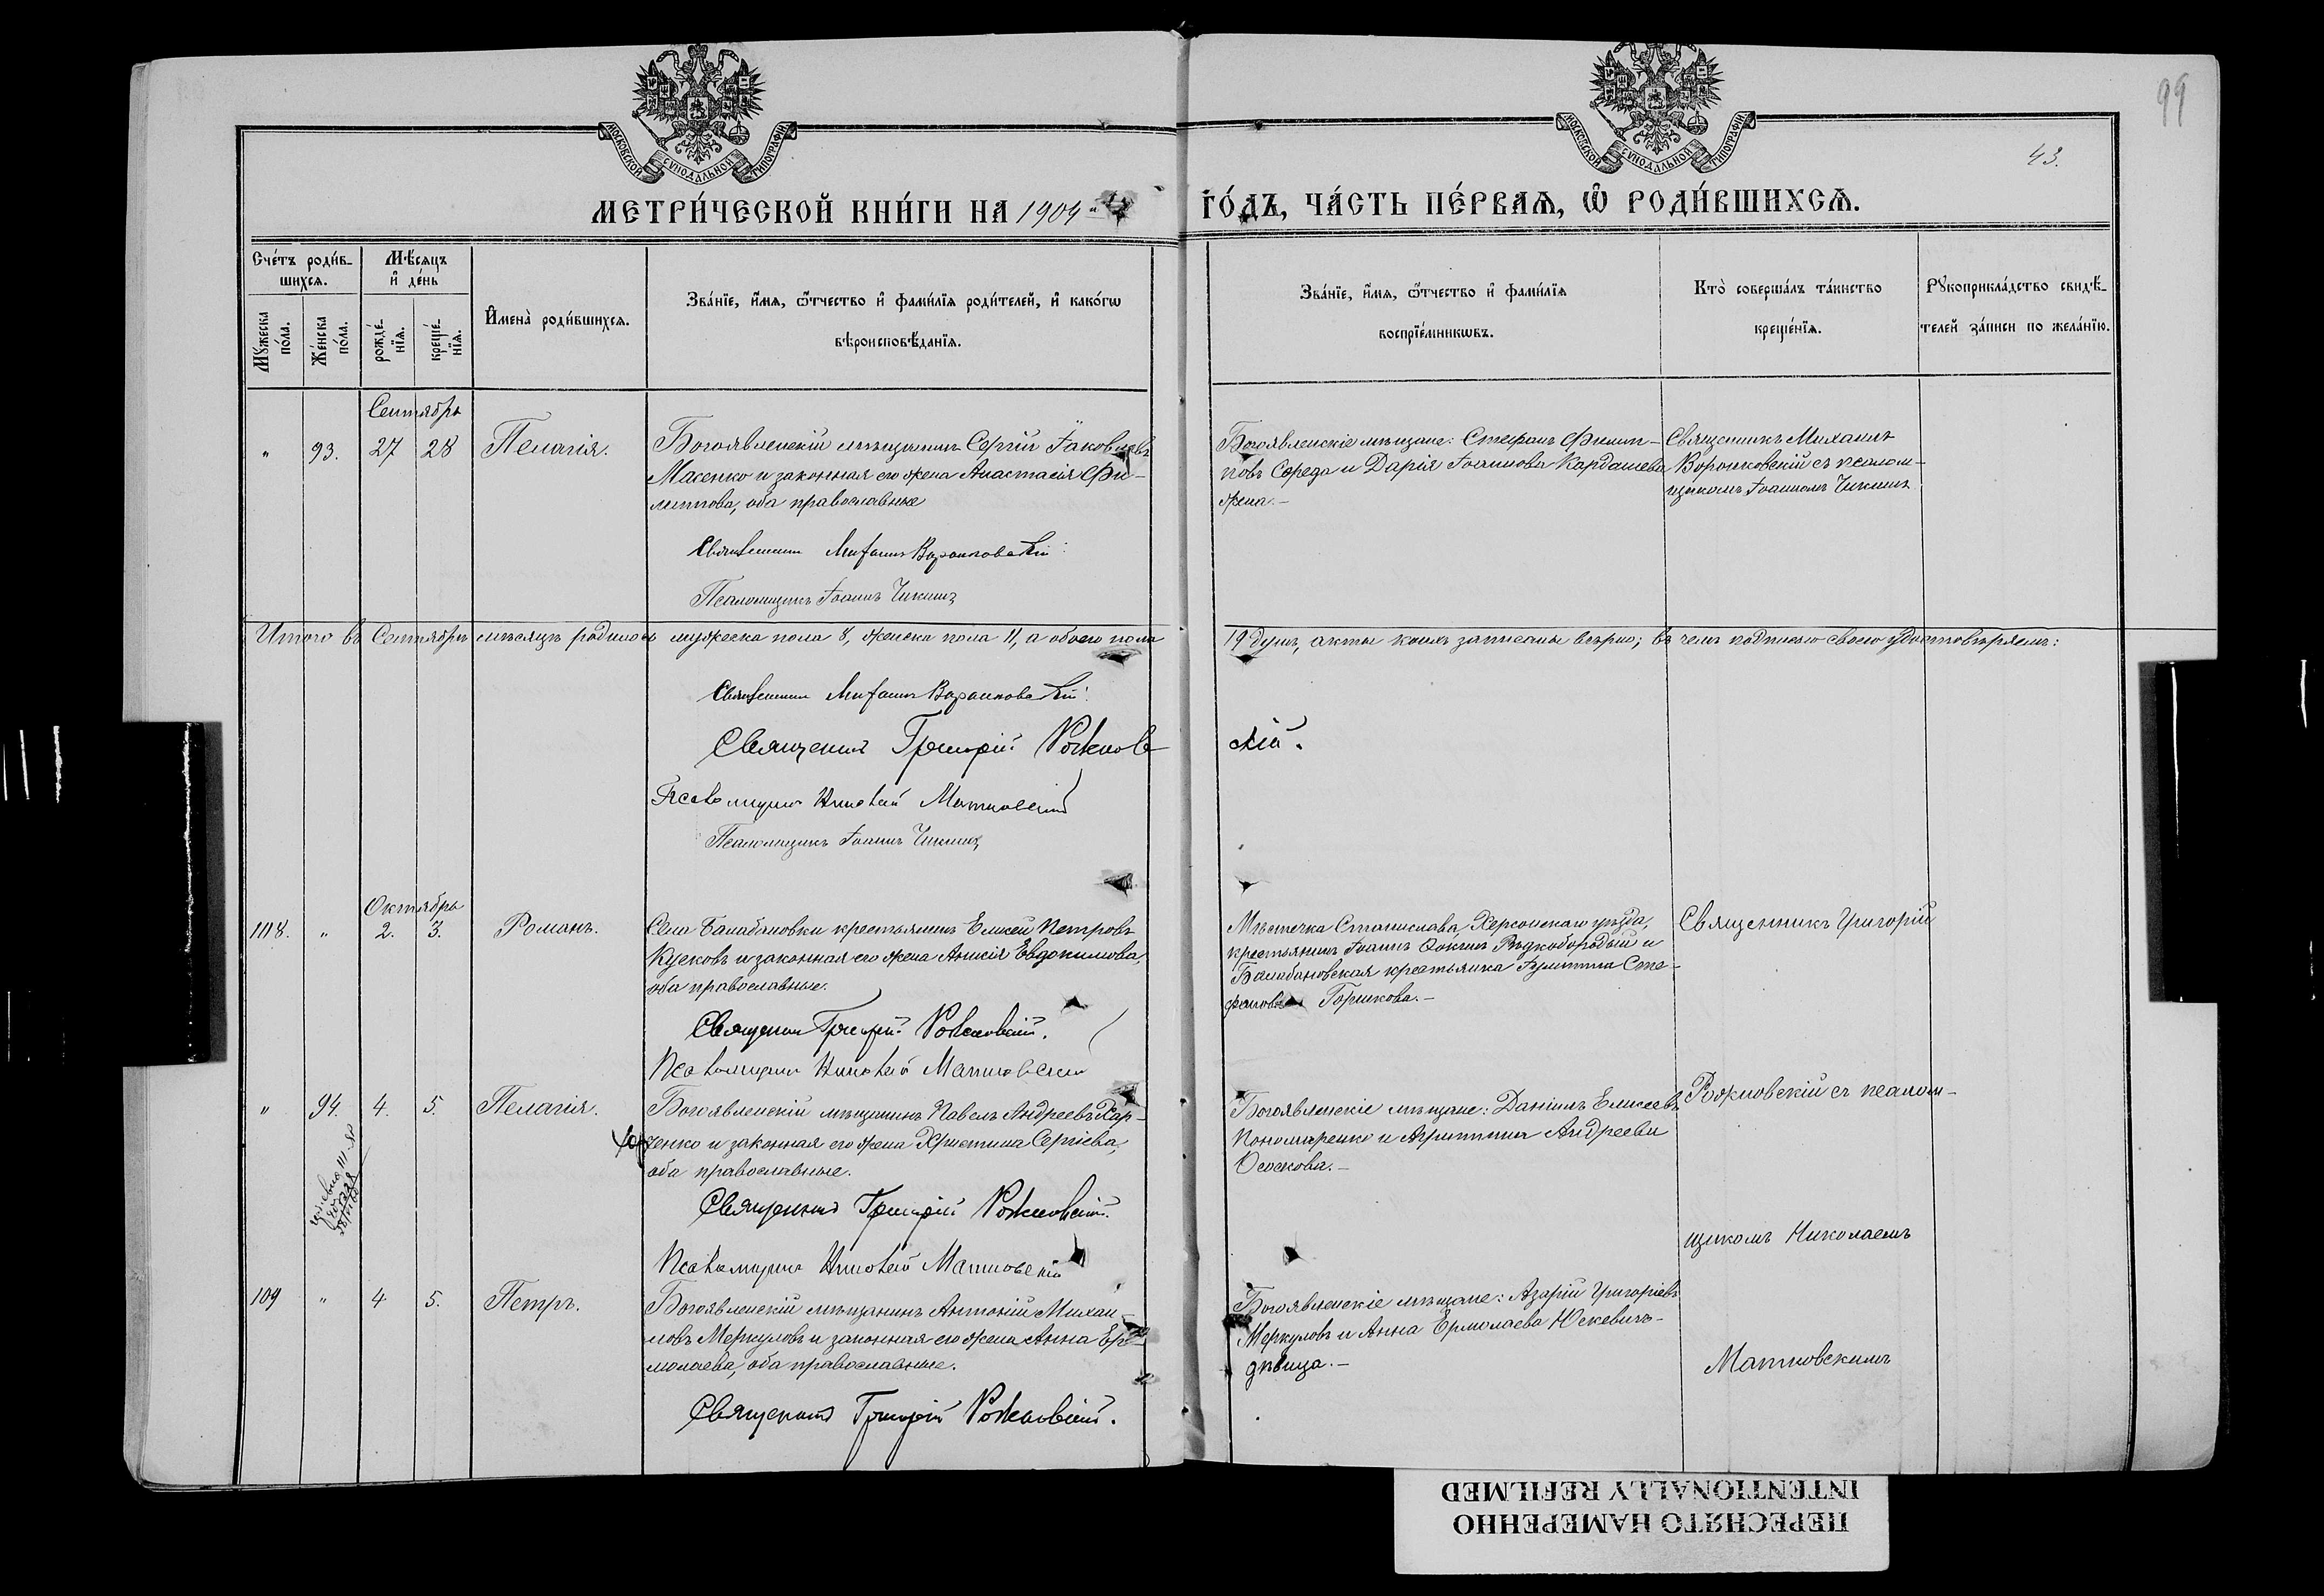 99
43.
МОСКОВСКОЙ СУНОДАЛЬНОЙ ТИПОГРАФІИ
МОСКОВСКОЙ СУНОДАЛЬНОЙ ТИПОГРАФІИ
МЕТРИ́ЧЕСКОЙ КНИ́ГИ НА 1904 й ГО́ДЪ, ЧА́СТЬ ПЕ́РВАѦ, Ѽ РОДИ́ВШИХСѦ.
Сче́тъ роди́в-
шихсѧ.
Мꙋ́жеска по́ла.
Же́нска по́ла.
Мѣ́сѧцъ
и҆ де́нь
рожде́-
нїѧ.
креще́-
нїѧ.
И҆мена̀ роди́вшихсѧ.
Зва́нїе, и҆́мѧ, ѻ҆́тчество и҆ фами́лїѧ роди́телей, и҆ како́гѡ
вѣроисповѣ́данїѧ.
Зва́нїе, и҆́мѧ, ѻ҆́тчество и҆ фами́лїѧ
воспрїе́мникѡвъ.
Кто̀ соверша́лъ та́инство
креще́нїѧ.
Рꙋкоприкла́дство свидѣ́-
телей за́писи по жела́нїю.
Сентябрь
" 93. 27 28 Пелагія.
Богоявленскій мѣщанинъ Сергій Іаковлевъ
Масенко и законная его жена Анастасія Фи-
липпова, оба православные
Священникъ Михаилъ Воронковскій
Псаломщикъ Іоаннъ Чикинъ
Богоявленскіе мѣщане: Стефанъ Филип-
повъ Середа и Дарія Іоаннова Кардашева
жена.-
Священникъ Михаилъ
Воронковскій съ псалом-
щикомъ Іоанномъ Чикинъ
Итого въ Сентябрѣ мѣсяцѣ родилось мужеска пола 8, женска пола 11, а обоего пола 19 душъ, акты коихъ записаны вѣрно; въ чемъ подписью своею удостовѣряемъ:
Священникъ Михаилъ Воронковскій
Священникъ Григорій Рожновскій.
Псаломщикъ Николай Матковскій
Псаломщикъ Іоаннъ Чикинъ
Октябрь
108. " 2. 3. Романъ.
Села Балабановки крестьянинъ Елисей Петровъ
Кусковъ и законная его жена Анисія Евдокимова,
оба православные.
Священникъ Григорій Рожновскій.
Псаломщикъ Николай Матковскій
Мѣстечка Станислава, Херсонскаго уѣзда,
крестьянинъ Іоаннъ Рѣдкобородый и
Балабановская крестьянка Іулитта Сте-
фанова Горшкова.-
Священникъ Григорій
" 94. 4. 5. Пелагія.
Богоявленскій мѣщанинъ Павелъ Андреевъ Хар-
ченко и законная его жена Христина Сергіева,
оба православные.
Священникъ Григорій Рожновскій.
Псаломщикъ Николай Матковскій
Богоявленскіе мѣщане: Даніилъ Елисеевъ
Пономаренко и Агриппина Андреева
Ососкова.-
Рожновскій съ псалом-
щикомъ Николаемъ
109 " 4 5. Петръ.
Богоявленскій мѣщанинъ Антоній Михаи-
ловъ Меркуловъ и законная его жена Анна Ер-
молаева, оба православные.
Священникъ Григорій Рожновскій.
Богоявленскіе мѣщане: Азарій Григоріевъ
Меркуловъ и Анна Ермолаева Юскевичъ-
дѣвица.-
Матковскимъ
ПЕРЕСНЯТО НАМЕРЕННО
INTENTIONALLY REFILMED